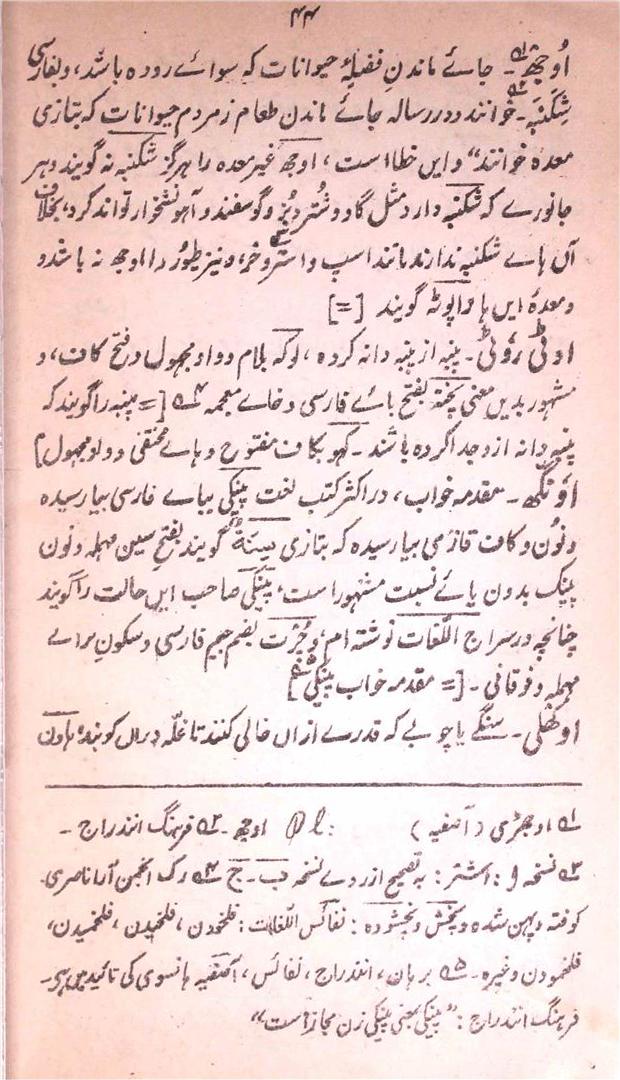 ۴۴
اُوجھ۔ جائے ماندنِ فضیلۂ حیوانات کہ سوائے رودہ باشد، و بفارسی
شِکَنبَہ۔ خوانند و در رسالہ جائے ماندن طعام ز مردم حیوانات کہ بتازی
معدہ خوانند“ و ایں خطا است، اوجھ غیر معدہ را ہرگز شکنبہ نہ گویند و ہر
جانورے کہ شکنبہ دارد مثل گاو و شُتر و بُز و گوسفند و آہو نشخوار تواند کرد، بخلاف
آں ہاے شکنبہ ندارند مانند اسپ و استر و خر، و نیز طیور را اوجھ نہ باشد و
و معدۂ ایں ہا را پوٹہ گویند [=]
اوٹی رُوئی۔ پنبہ از پنبہ دانہ کردہ، لوکہ بلام و واو مجہول و فتح کاف، و
مشہور بدیں معنی پَخْتہ بفتح بائے فارسی و خاے معجمہ ۴؎ [= پنبہ را گویند کہ
پنبہ دانہ ازو جدا کردہ باشند۔ کہو بکاف مفتوح و ہاے مختفی و واو مجہول]
اُونگھ۔ مقدمہ خواب، در اکثر کتب لغت پینکی بباے فارسی بیا رسیدہ
و نُون و کاف فارسی بیا رسیدہ کہ بتازی سِنَۃ گویند بفتح سین مہملہ و نون
پینک بدون یائے نسبت مشہور است، پینکی صاحب ایں حالت را گویند
چنانچہ در سراج اللّغات نوشتہ ام، و چُرْت بضم جیم فارسی و سکونِ رائے
مہملہ و فوقانی۔ [= مقدمہ خواب پینکی ۵؎]
اوکھلی۔ سنگے یا چوبے کہ قدرے ازاں خالی کنند تا غلّہ دراں کوبند، ہاون
۱؎ اوجھڑی (آصفیہ) Pl: اوجھ۔ ۲؎ فرہنگ انندراج۔
۳؎ نسخہ و: اشتر: بہ تصحیح از روے نسخہ ب۔ ج ۴؎ رک انجمن آراناصری۔
کوفتہ و پہن شدہ و پخش و پخشودہ: نفائس اللغات: فلخودن، فلخیدن، فلخمیدن،
فلخمودن وغیرہ۔ ۵؎ برہان، انندراج، نفائس، آصفیہ ہانسوی کی تائید میں ہیں۔
فرہنگ انندراج: ”پینکی بمعنی پینکی زن مجاز است“